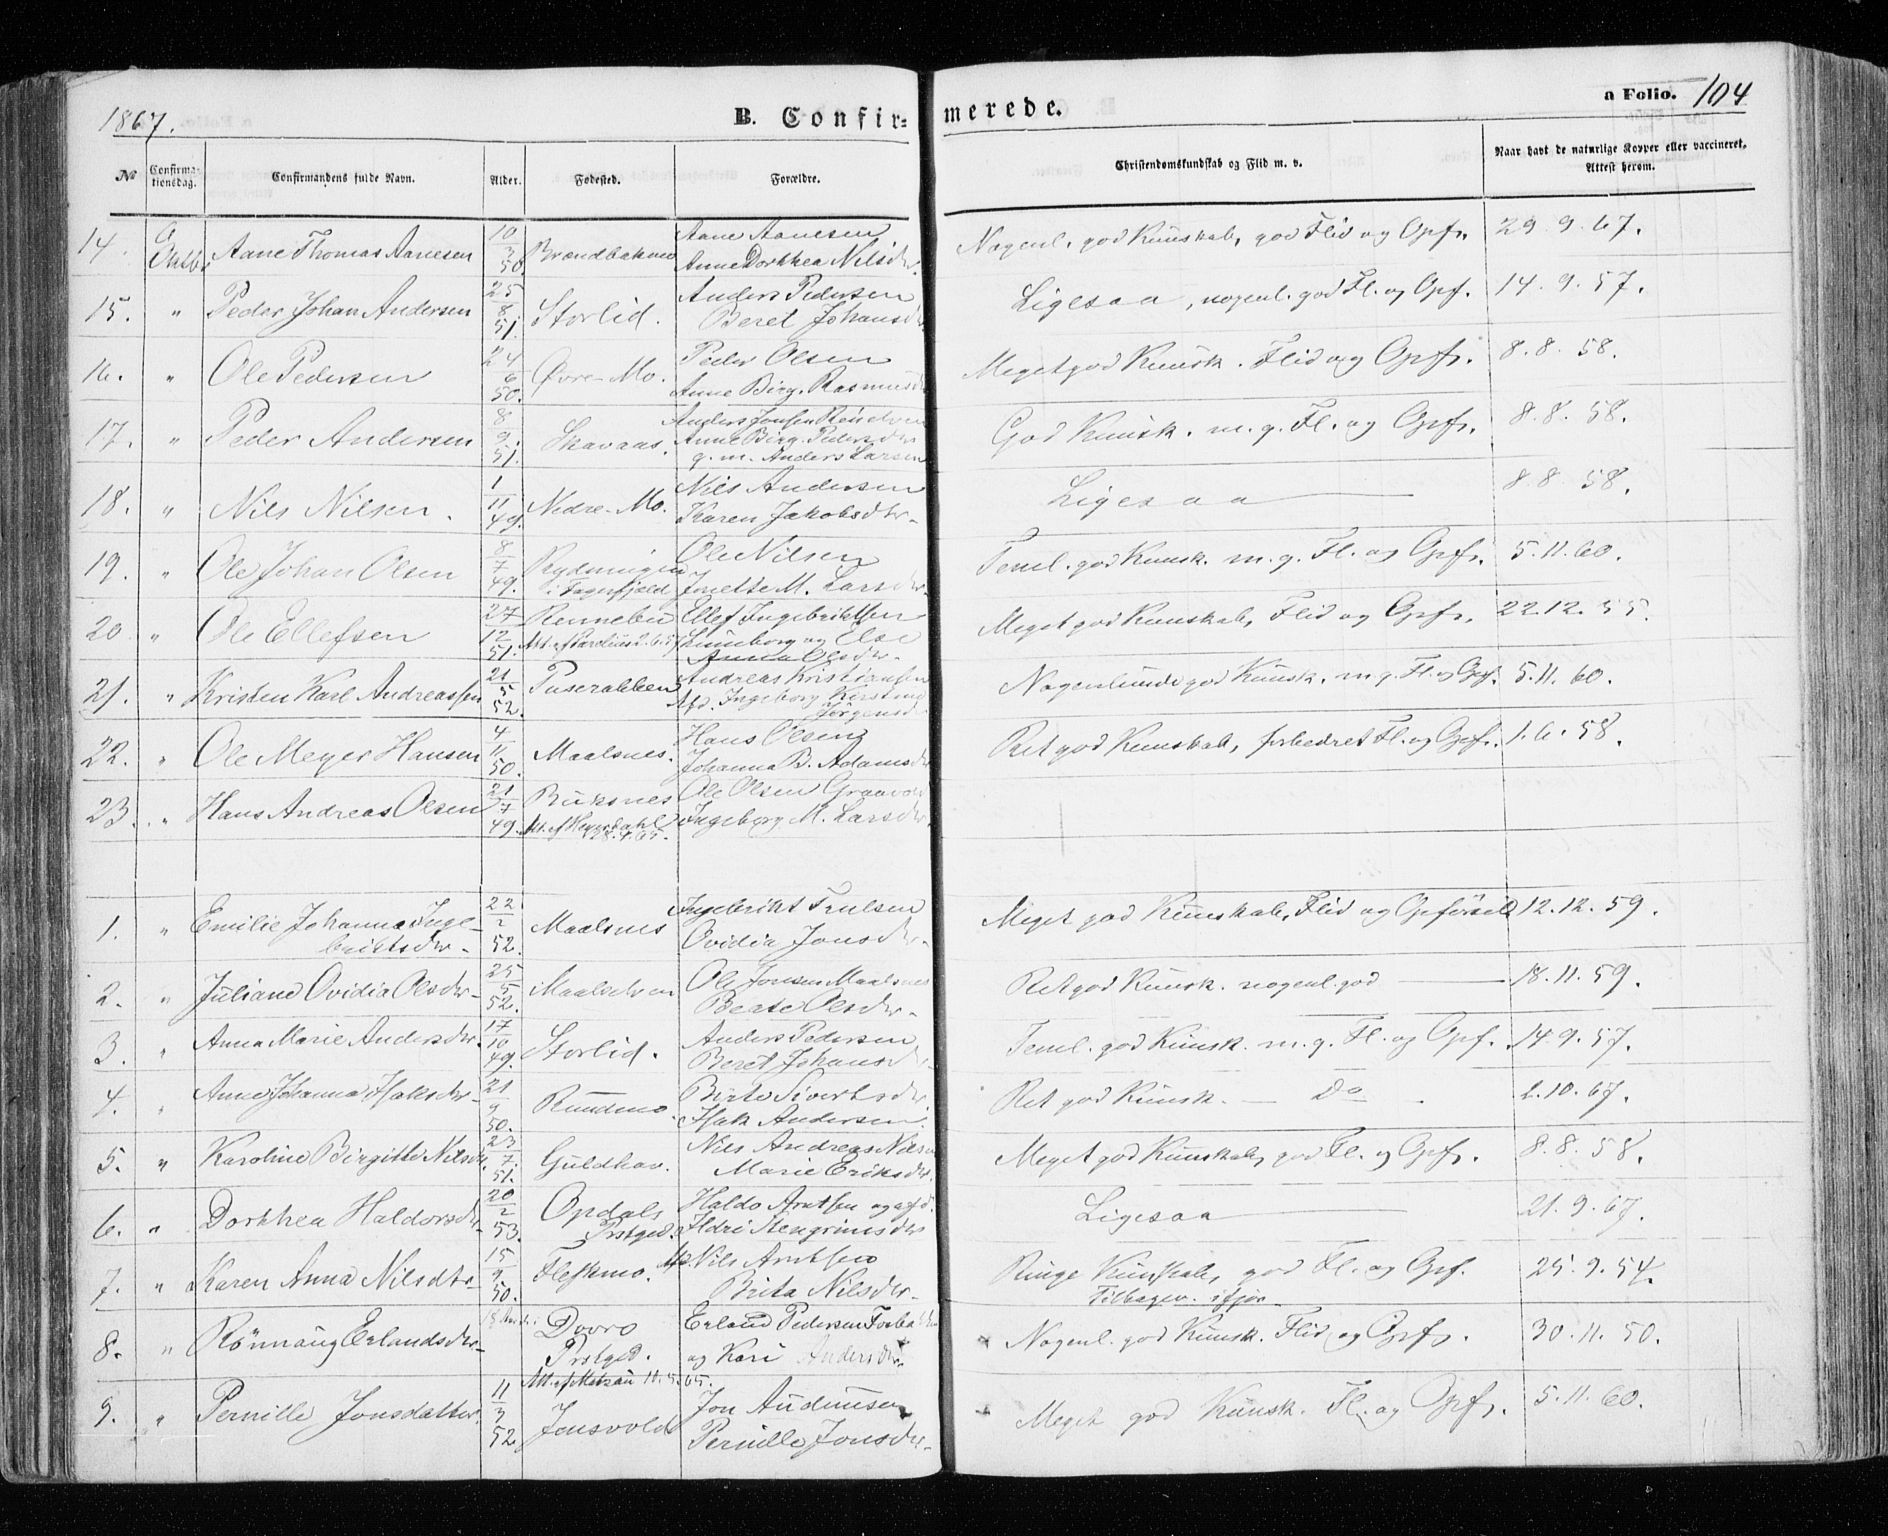 1867. B. Confir= merede. a Folio. 104
No Confirma-tionsdag. Confirmandens fulde Navn. Alder. Fødested. Forældre. Christendomskundskab og Flid m. v. Naar havt de naturlige Kopper eller vaccineret, Attest herom.
14. 6 Octbr Aane Thomas Aanesen 10/3 50. Brændbakmo Aane Aanesen Nogenl. god Kunskab, god Flid og Opf. 29.9.67.
Anne Dorthea Nilsdtr.
15. " Peder Johan Andersen 25/8 51. Storlid. Anders Pedersen Ligesaa, nogenl. god Fl. og Opf. 14.9.57.
Beret Johansdtr
16. " Ole Pedersen 24/6 50. Øvre-Mo. Peder Olsen Meget god Kunsk. Flid og Opf. 8.8.58.
Anne Birg. Rasmusd
17. " Peder Andersen 8/9 51. Skavaas. Anders Jonsen God Kunsk. m. g. Fl. og Opf. 8.8.58.
Anne Birg. Pedersdtr
g. m. Anders Larsen
18. " Nils Nilsen. 1/11 49. Nedre-Mo. Nils Andersen Ligesaa 8.8.58.
Karen Jakobsdtr.
19. " Ole Johan Olsen 8/7 49. Rydningen Ole Nilsen Teml. god Kunsk. m. g. Fl. og Opf. 5.11.60.
i Fagerfjeld Jonette M. Larsdtr.
20 " Ole Ellefsen 27/12 51. Rennebu Ellef Ingebriktsen Meget god Kunskab, Flid og Opf. 22.12.55.
og Else
Anna Olsdtr.
21. " Kristen Karl Andreassen 21/5 52. Andreas Kristiansen Nogenlunde god Kunsk. m. g. Fl. og Opf. 5.11.60.
Ingeborg Kirstine
Jörgensd
22. " Ole Meyer Hansen 4/11 50. Maalsnes. Hans Olsen Ret god Kunskab, forbedret Fl. og Opf. 1.6.58.
Johanna B. Adamsd
23. " Hans Andreas Olsen 21/7 49. Buksnes Ole Olsen Graavold
Att. af Heyerdahl Ingeborg M. Larsdtr.
1. " Emilie Johanna Inge- 22/2 52. Maalsnes Ingebrikt Trulsen Meget god Kunskab, Flid og Opförsel 12.12.59.
briktsdtr. Ovidia Jonsdtr.
2. " Juliane Ovidia Olsdtr. 25/5 52. Maalselven Ole Jonsen Maalsnes Ret god Kunsk. nogenl. god 18.11.59.
Berte Olsdtr.
3. " Anna Marie Andersdtr. 17/10 49. Storlid. Anders Pedersen Teml. god Kunsk. m. g. Fl. og Opf. 14.9.57.
Beret Johansd
4. " Anne Johanna Isaksdtr. 21/9 50. Rundmo. Berte Sivertsdtr. Ret god Kunsk. — Do 1.10.67.
Isak Andersen.
5. " Karoline Birgitte Nilsdtr. 23/7 51. Guldhav. Nils Andreas Nilsen Meget god Kunskab, god Fl. og Opf. 8.8.58.
Marie Eriksdtr.
6. " Dorthea Haldorsdtr. 20/2 53. Opdals Haldo Arntsen og Ligesaa 21.9.67.
Prstgjd. Ildri Stengrimsdtr
7. " Karen Anna Nilsdtr 15/9 50. Fleskmo. Nils Arntsen Ringe Kunskab, god Fl. og Opf. 25.9.54.
Brita Nilsdtr. Tilbagev. ifjor
8. " Rönnaug Erlandsdtr. Dovre Erland Pedersen Nogenl. god Kunsk. Flid og Opf. 30.11.50.
Prstgjd. og Kari Andersdtr.
9. " Pernille Jonsdatter 11/3 52 Jonsvold Jon Audunsen Meget god Kunsk. Fl. og Opf. 5.11.60.
Pernille Jonsdtr.